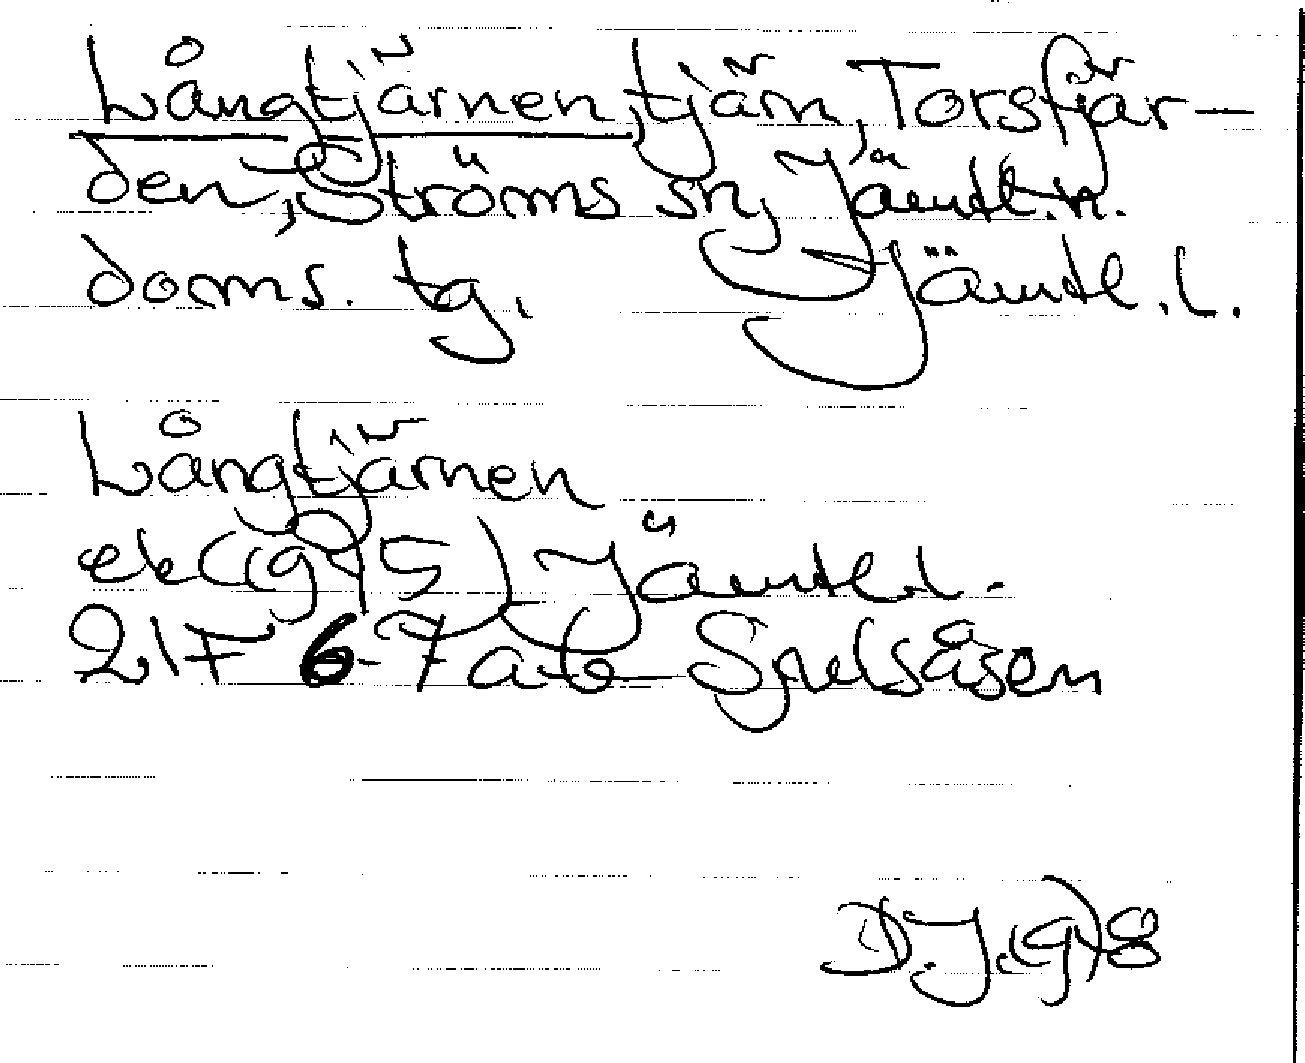 Långtjärnen, tjärn, Torsfjär-
den, Ströms sn, Jämtl. n.
doms. tg. Jämtl. l.
Långtjärnen
ek (1915) Jämtl. l.
21F 6-7 a-b Sjulsåsen
D.J. (9)8